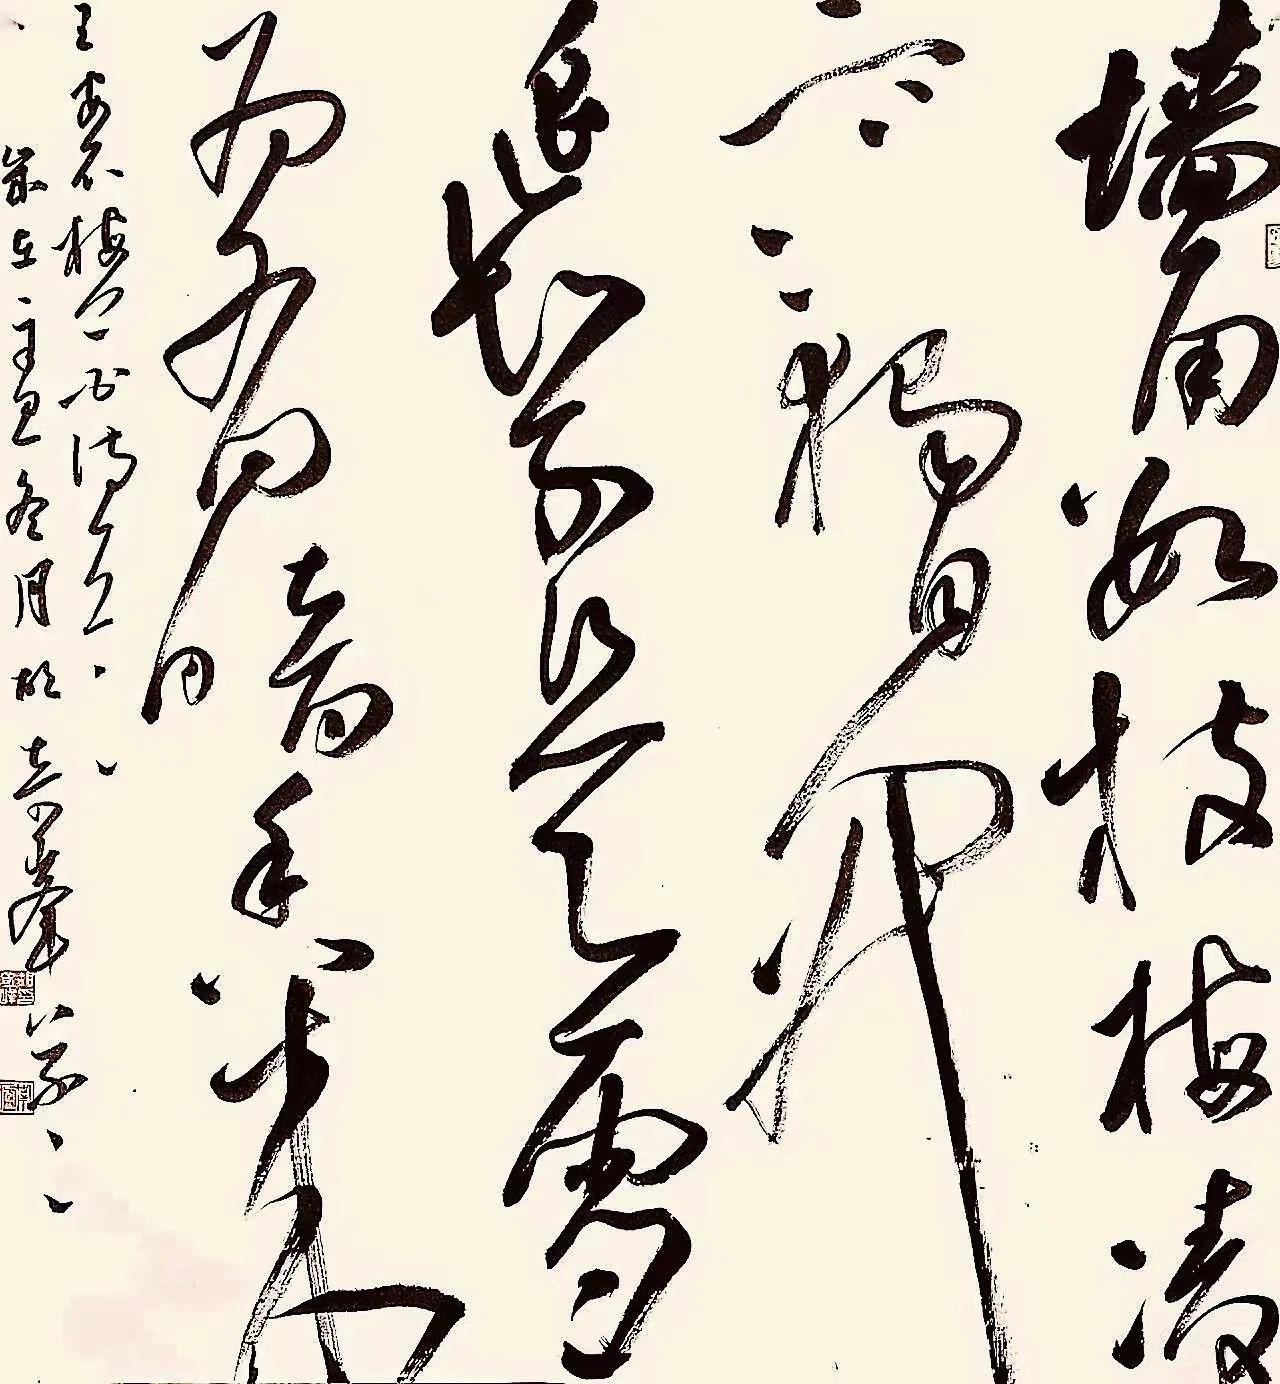 墙角数枝梅凌
寒独自開
遥知不是雪
为有暗香来
王安石梅花诗
岁在辛丑冬月